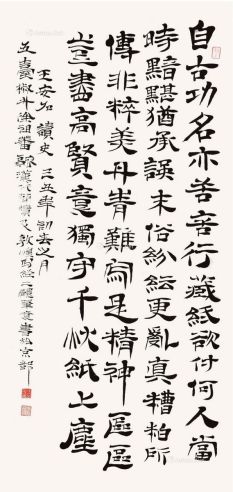 自古功名亦苦辛行藏終欲付何人當
時黯黮猶承誤末俗紛紜更亂真糟粕所
傳非粹美丹青難寫是精神區區
豈盡高賢意獨守千秋紙上塵
王安石讀史 年初春之月
五臺 徐祖蕃 漢代 及敦煌寫經 筆意書於京都